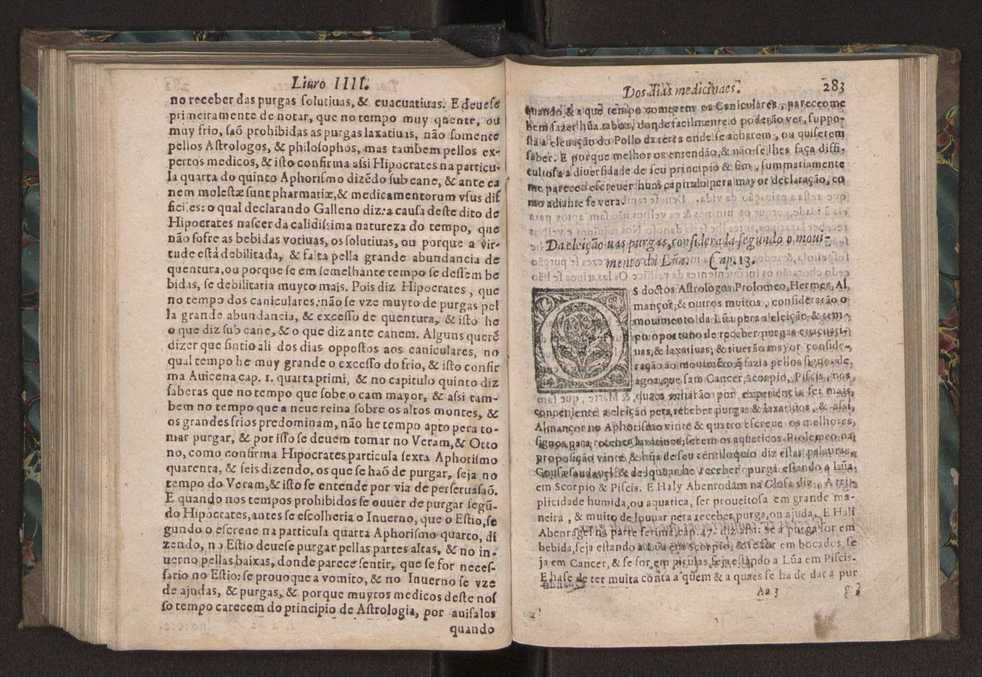 Liuro IIII.
no receber das purgas solutiuas, & euacuatiuas. E deuese
primeiramente de notar, que no tempo muy quente, ou
muy frio, saõ prohibidas as purgas laxatiuas, não somente
pellos Astrologos, & philosophos, mas tambem pellos ex-
pertos medicos, & isto confirma assi Hipocrates na particu-
la quarta do quinto Aphorismo dizẽdo sub cane, & ante ca
nem molestæ sunt pharmatiæ, & medicamentorum vsus dif
ficiles: o qual declarando Galleno diz: a causa deste dito de
Hipocrates nascer da calidissima natureza do tempo, que
não sofre as bebidas votiuas, os solutiuas, ou porque a vir-
tude está debilitada, & falta pella grande abundancia de
quentura, ou porque se em semelhante tempo se dessem be
bidas, se debilitaria muyto mais. Pois diz Hipocrates, que
no tempo dos caniculares: não se vze muyto de purgas pel
la grande abundancia, & excesso de quentura, & isto he
o que diz sub cane, & o que diz ante canem. Alguns querẽ
dizer que sintio ali dos dias oppostos aos caniculares, no
qual tempo he muy grande o excesso do frio, & isto confir
ma Auicena cap. 1. quarta primi, & no capitulo quinto diz
saberas que no tempo que sobe o cam mayor, & assi tam-
bem no tempo que a neue reina sobre os altos montes, &
os grandes frios predominam, não he tempo apto pera to-
mar purgar, & por isso se deuem tomar no Veram, & Otto
no, como confirma Hipocrates particula sexta Aphorismo
quarenta, & seis dizendo, os que se haõ de purgar, seja no
tempo do Veram, & isto se entende por via de perseruasaõ.
E quando nos tempos prohibidos se ouuer de purgar segũ-
do Hipocrates, antes se escolheria o Inuerno, que o Estio, se
gundo o escreue na particula quarta Aphorismo quarto, di
zendo, no Estio deuese purgar pellas partes altas, & no in-
uerno pellas baixas, donde parece sentir, que se for neces-
sario no Estio: se prouoque a vomito, & no Inuerno se vze
de ajudas, & purgas, & porque muytos medicos deste nos
so tempo carecem do principio de Astrologia, por auisalos
quando
Dos dias medicinaes.
283
quando & a que tempo começem os Caniculares, pareceome
bem fazer hũa taboa, donde facilmente o poderão ver, suppo-
sta a eleuação do Pollo da terra onde se acharem, ou quiserem
saber. E porque melhor os entendão, & não se lhes faça diffi-
cultosa a diuersidade de seu principio & fim, summariamente
me pareceo escreuer hum capitulo pera mayor declaração, co
mo adiante se vera.
Da eleição das purgas, considerada segundo o moui-
mento da Lũa. Cap. 13.
OS doctos Astrologos Ptolomeo, Hermes, Al
mançor, & outros muitos, consideração o
mouimento da Lũa pera a eleição, & tem-
po oportuno de receber purgas euacuati-
uas, & laxatiuas; & tiuerão mayor conside-
ração ao mouimẽto q̃ fazia pellos signos de
agoa, que sam Cancer, Scorpio, Piscis, nos
quaes achàrão por experiencia ser mais
conueniente a eleição pera receber purgas & laxatiuos, & assi
Almançor no Aphorismo vinte & quatro escreue os melhores
signos para receber laxatiuos, serem os aquaticos. Ptolemeo na
proposição vinte & hũa de seu centiloquio diz estas palauras,
Cousa saudauel & de louuar he receber purga estando a Lũa,
em Scorpio & Piscis. E Haly Abenrodam na Glosa diz. A tri
plicidade humida, ou aquatica, ser proueitosa em grande ma-
neira, & muito de louuar pera receber purga, ou ajuda. E Hali
Abenragel na parte septima, cap. 47. diz assi: se a purga for em
bebida, seja estando a Lũa em Scorpio, & se for em bocados, se
ja em Cancer, & se for em pirulas, seja estando a Lũa em Piscis.
E hase de ter muita conta a quem & a quaes se ha de dar a pur
Aa 3